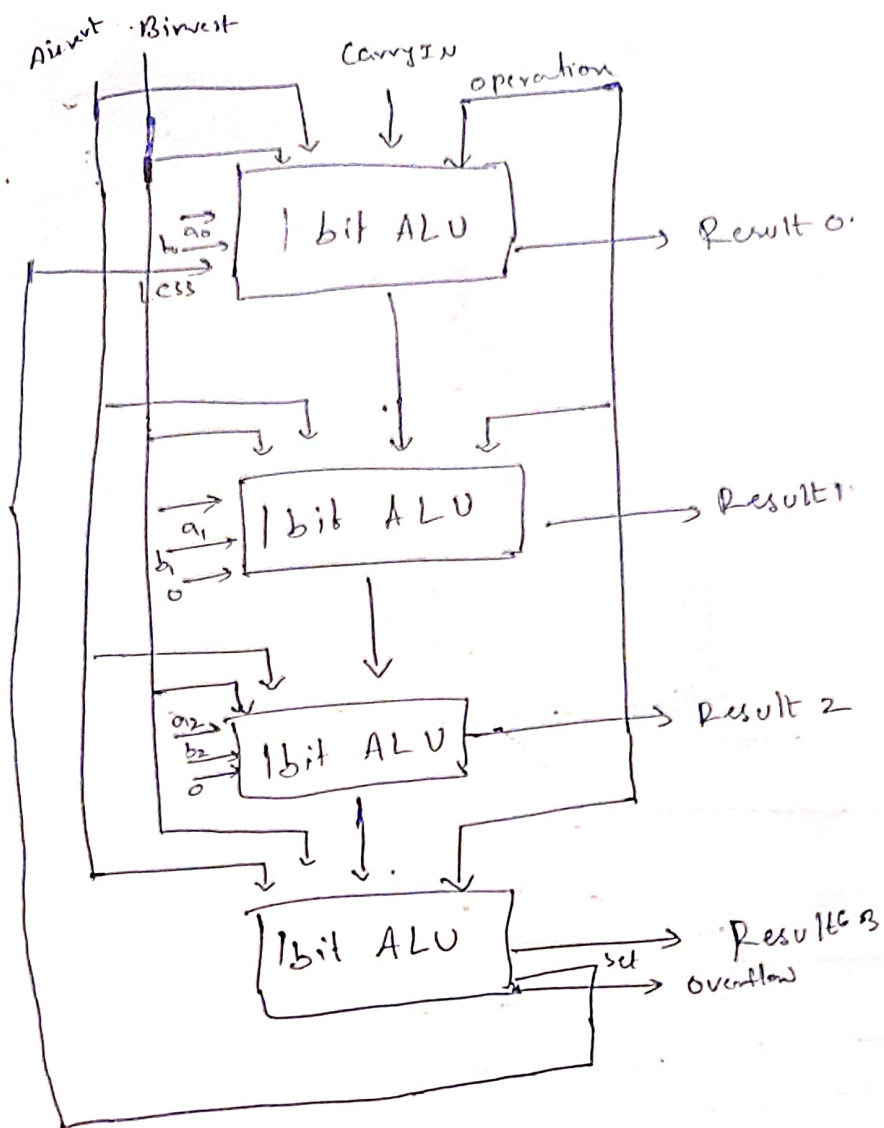 Ainvert Binvert
CarryIN
operation
a0
b0
1 bit ALU
Result 0.
Less
a1
b1
0
1 bit ALU
Result 1.
a2
b2
0
1bit ALU
Result 2
1bit ALU
Result 3
set
overflow